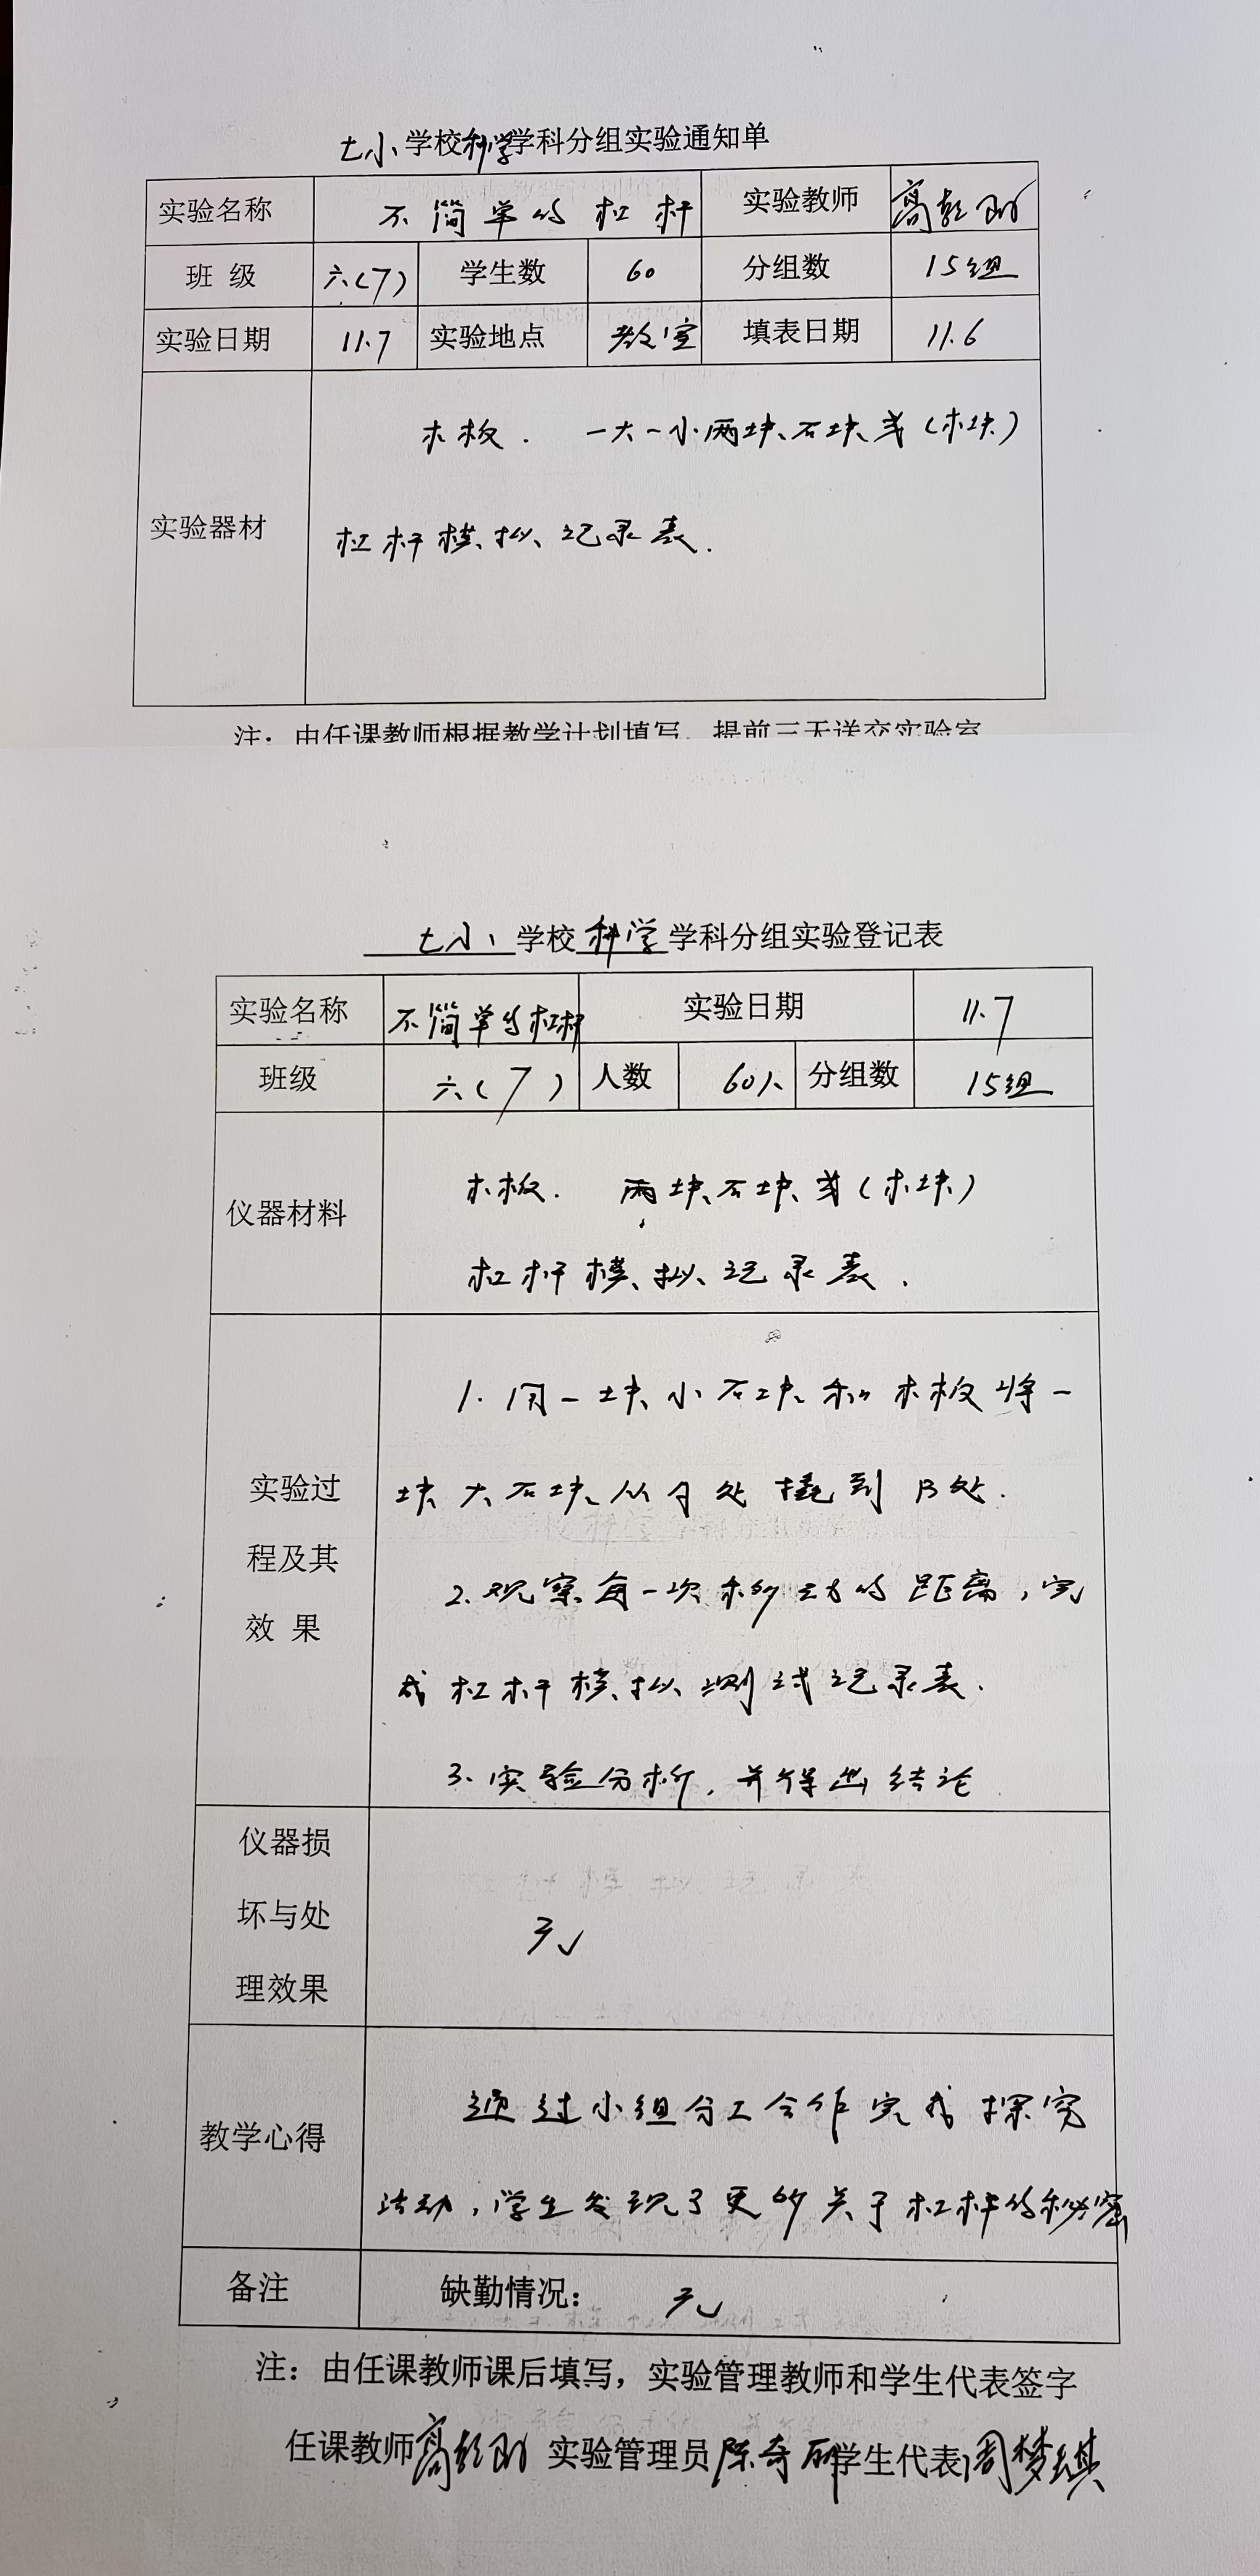 七小学校科学学科分组实验通知单
实验名称 不简单的杠杆 实验教师 高
班 级 六(7) 学生数 60 分组数 15组
实验日期 11.7 实验地点 教室 填表日期 11.6
木板. 一大一小两块石块或(木块)
实验器材
杠杆模拟记录表.
注：由任课教师根据教学计划填写，提前三天送交实验室
七小学校科学学科分组实验登记表
实验名称 不简单的杠杆 实验日期 11.7
班级 六(7) 人数 60人 分组数 15组
木板. 两块石块或(木块)
仪器材料
杠杆模拟记录表.
1.用一块小石块和木板将一
实验过 块大石块从A处撬到B处.
程及其
2.观察每一次移动的距离,完
效 果
成杠杆模拟测试记录表.
3.实验分析,并得出结论
仪器损
坏与处 无
理效果
通过小组分工合作完成探究
教学心得
活动,学生发现了更多关于杠杆的秘密
备注 缺勤情况： 无
注：由任课教师课后填写，实验管理教师和学生代表签字
任课教师高 实验管理员陈奇 学生代表周梦琪